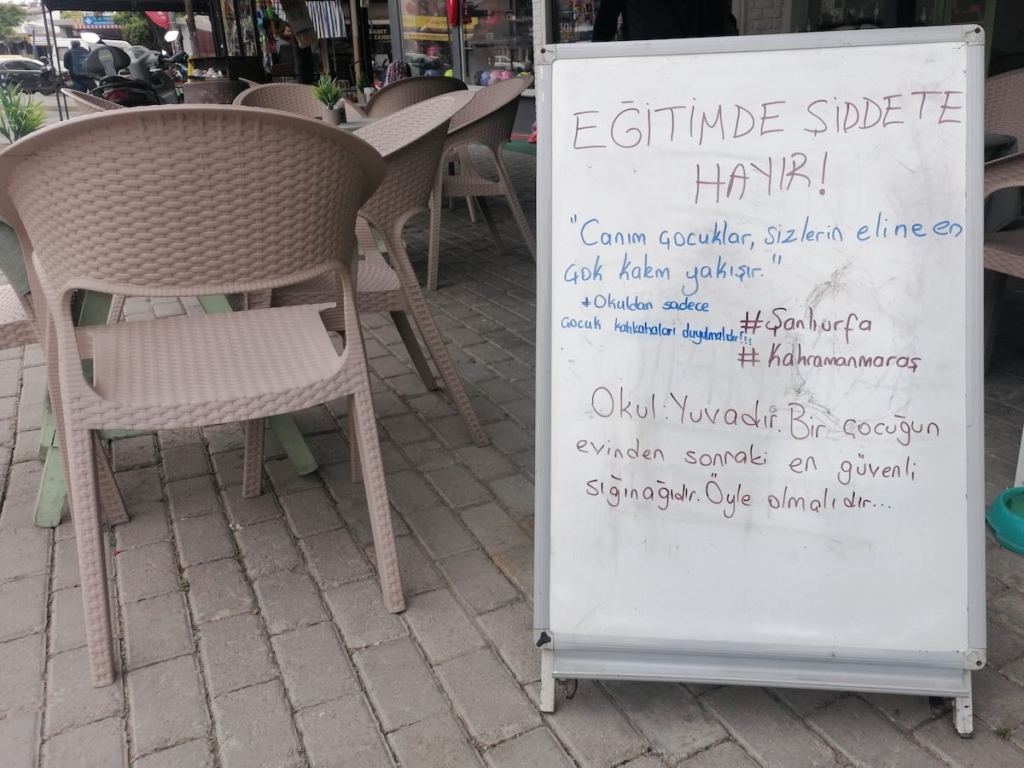 EĞİTİMDE ŞİDDETE
HAYIR!
"Canım çocuklar, sizlerin eline en
çok kalem yakışır."
* Okuldan sadece
çocuk kahkahaları duyulmalıdır!!!
#Şanlıurfa
#Kahramanmaraş
Okul Yuvadır. Bir çocuğun
evinden sonraki en güvenli
sığınağıdır. Öyle olmalıdır...